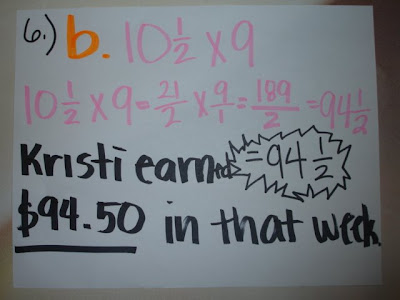 6.) b. 10 1/2 x 9
10 1/2 x 9 = 21/2 x 9/1 = 189/2 = 94 1/2
Kristi earned = 94 1/2
$94.50 in that week.